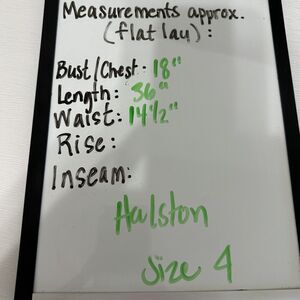 Measurements approx.
(flat lay):
Bust/Chest: 18"
Length: 36"
Waist: 14 1/2"
Rise:
Inseam:
Halston
Size 4